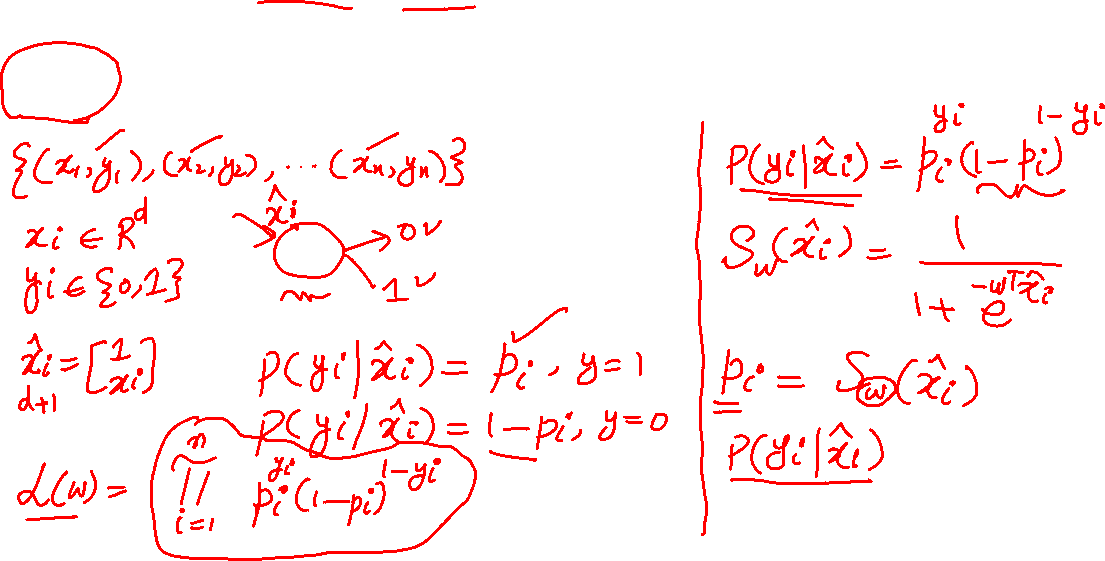 {(x₁,y₁),(x₂,y₂), ... (xₙ,yₙ)}
xi ∈ R^d
yi ∈ {0,1}
x̂i
0
1
x̂i = [1 xi]
d+1
P(yi|x̂i) = pi, y=1
P(yi/x̂i) = 1-pi, y=0
L(w) = ∏_{i=1}^{n} pi^{yi} (1-pi)^{1-yi}
P(yi|x̂i) = pi^{yi} (1-pi)^{1-yi}
S_w(x̂i) = 1/(1+e^{-w^T x̂i})
pi = S_w(x̂i)
P(yi|x̂i)